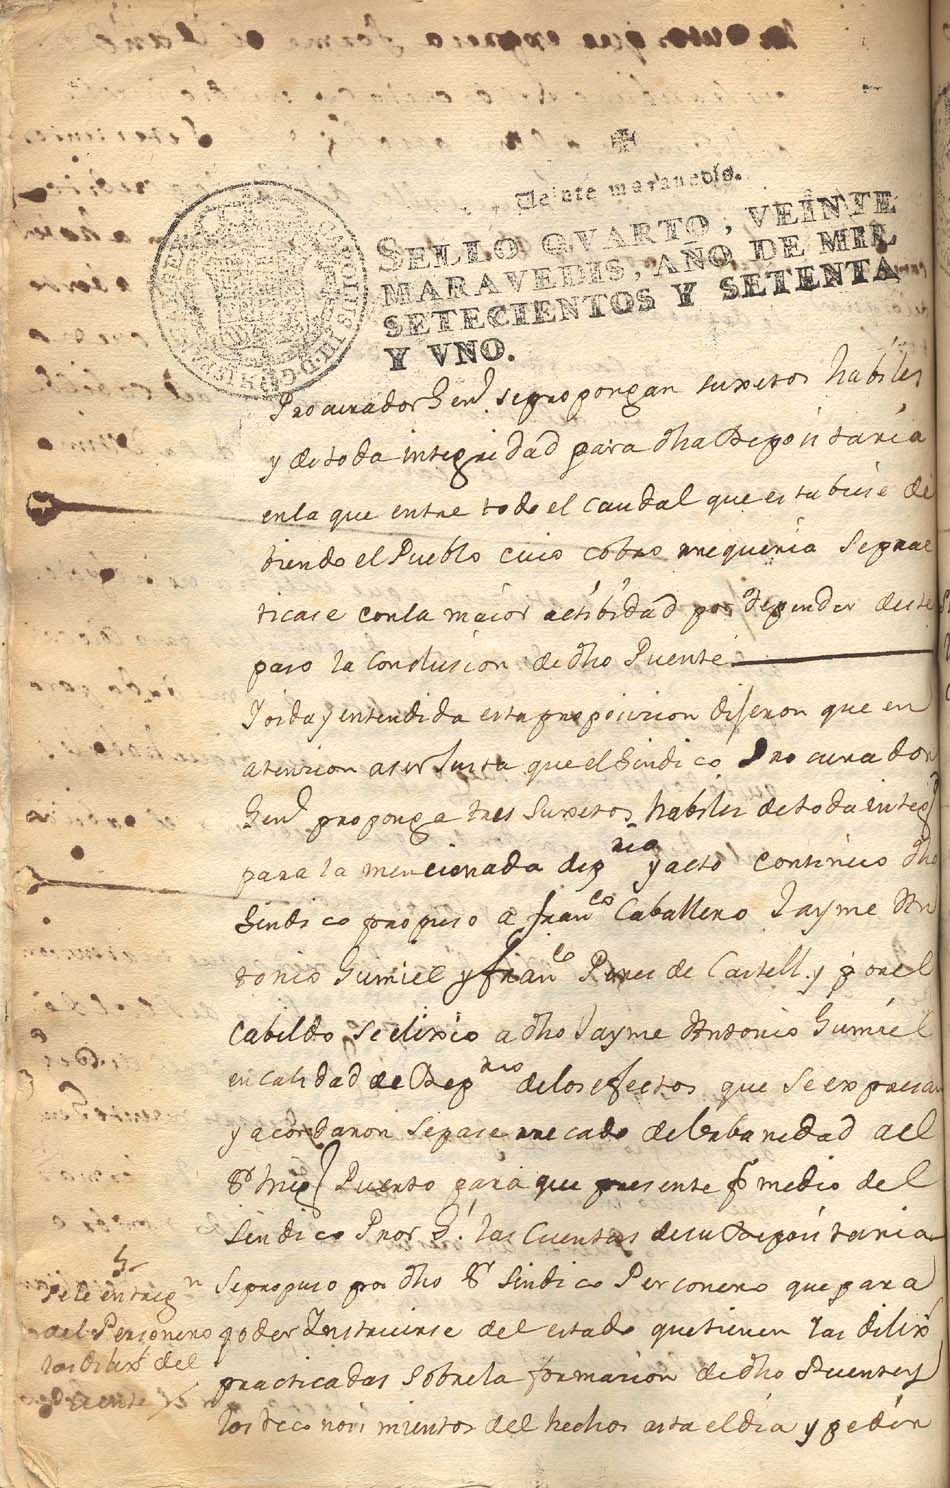 Veinte maravedis.
SELLO QVARTO, VEINTE
MARAVEDIS, AÑO DE MIL
SETECIENTOS Y SETENTA
Y VNO.
Procurador Gen.l se propongan suxetos habiles
y de toda integridad para dha Depositaria
en la que entre todo el caudal que estubiese de
biendo el Pueblo cuio cobro requeria se prac
ticase con la maior actibidad por depender de este
paso la Conclusion de dho Puente
Y oida y entendida esta proposicion dijeron que en
atencion a ser Justa que el Sindico Procurador
Gen.l proponga tres Suxetos habiles de toda integ.d
para la mencionada dep.ria y acto continuo dho
Sindico propuso a Fran.co Caballero Jayme An
tonio Gumiel y Fran.co Peres de Castell. y por el
Cabildo se elixio a dho Jayme Antonio Gumiel
en calidad de Dep.rio de los efectos que se expresan
y acordaron se pase recado de Urbanidad a el
S.r Mig.l Puerto para que presente p.r medio del
Sindico Pror G.l las Cuentas de su Depositaria
Se propuso por dho S.r Sindico Personero que para
poder Instruirse del estado que tienen las dilix.s
practicadas sobre la formacion de dho Puente y
los reconosimientos del hechos asta el dia y pedir
Se le entreg.n
al Personero
las dilix.s del
Puente